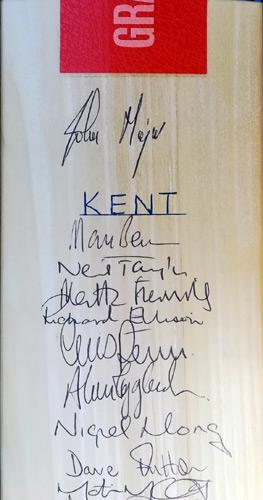 GRA
John Major
KENT
Mark Benson
Neil Taylor
Matthew Fleming
Richard Ellison
Chris Penn
Alan Igglesden
Nigel Llong
Dave Fulton
Martin McCague